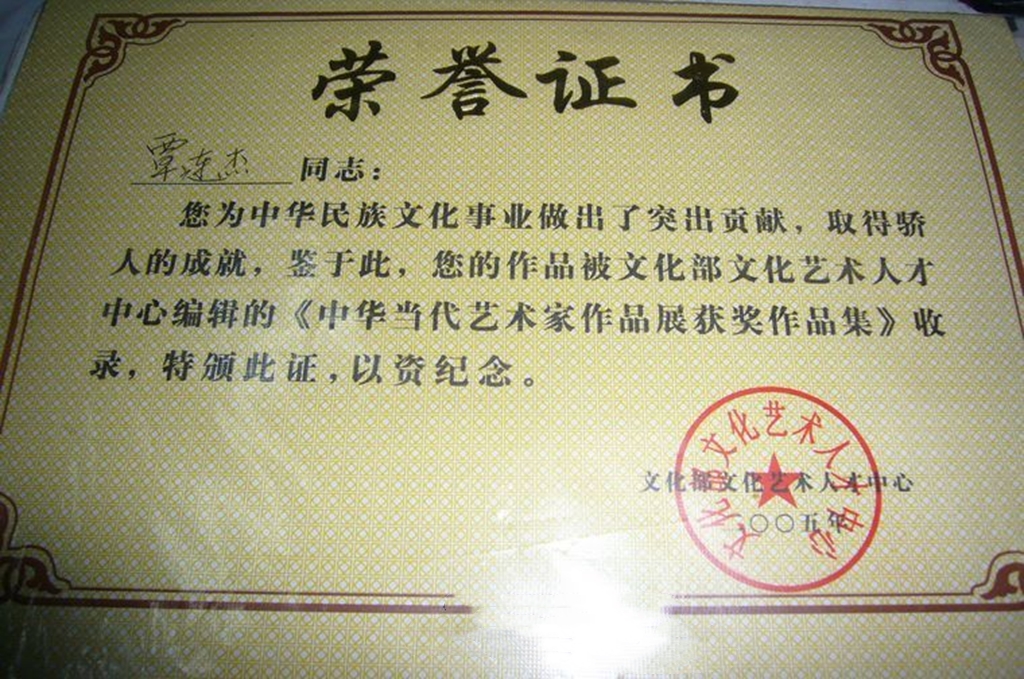 荣誉证书
覃连杰 同志：
您为中华民族文化事业做出了突出贡献，取得骄
人的成就，鉴于此，您的作品被文化部文化艺术人才
中心编辑的《中华当代艺术家作品展获奖作品集》收
录，特颁此证，以资纪念。
文化部文化艺术人才中心
文化部文化艺术人才中心
二〇〇五年